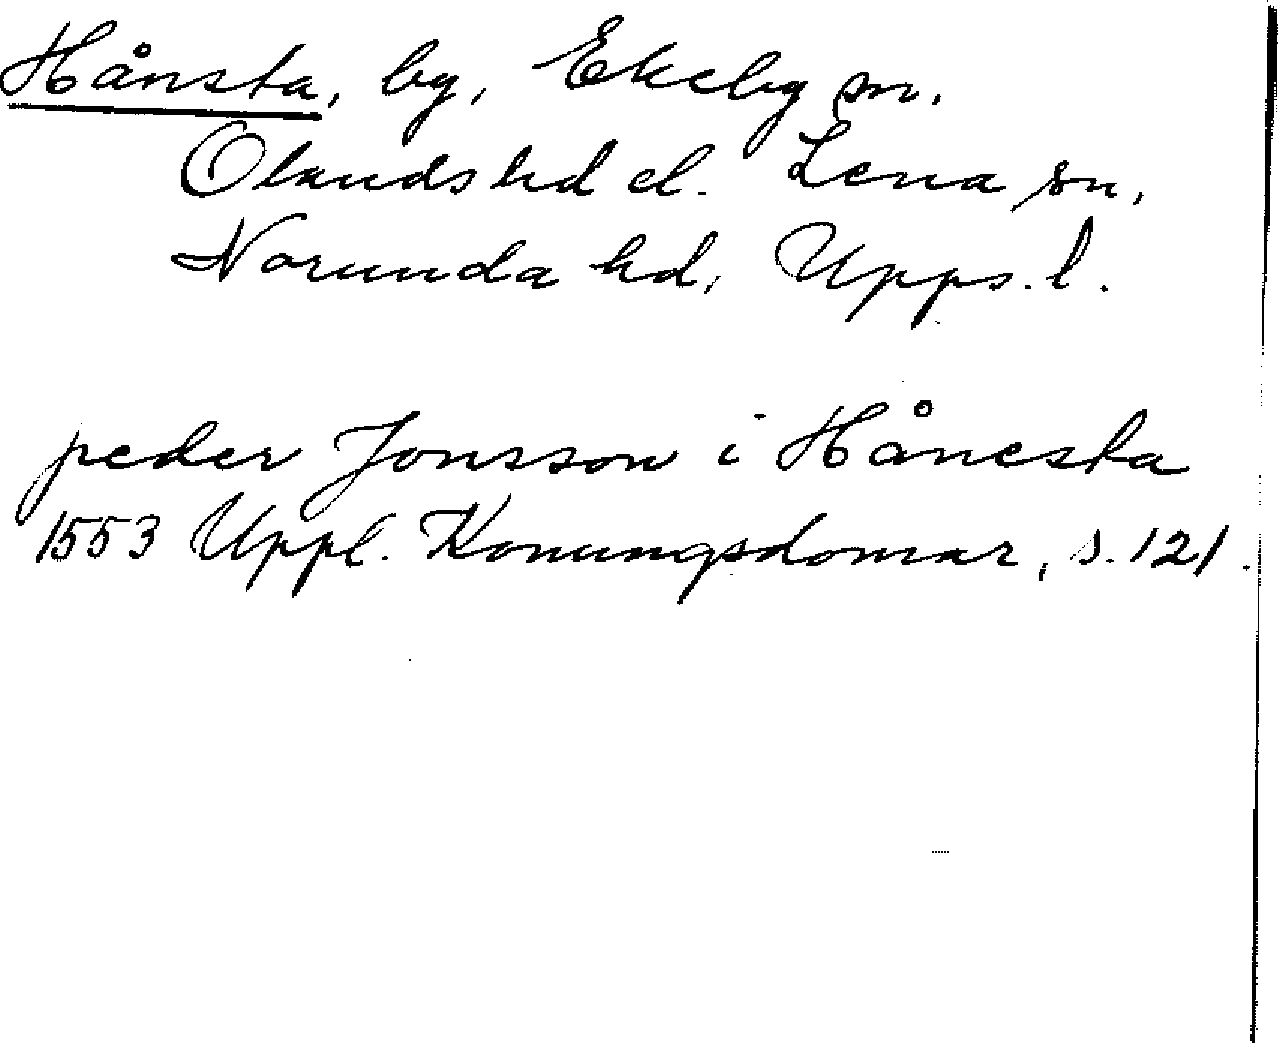 Hånsta, by, Ekeby sn.
Olands hd el. Lena sn,
Norunda hd, Upps. l.
peder Jonsson i Hånesta
1553 Uppl. Konungsdomar, s. 121.